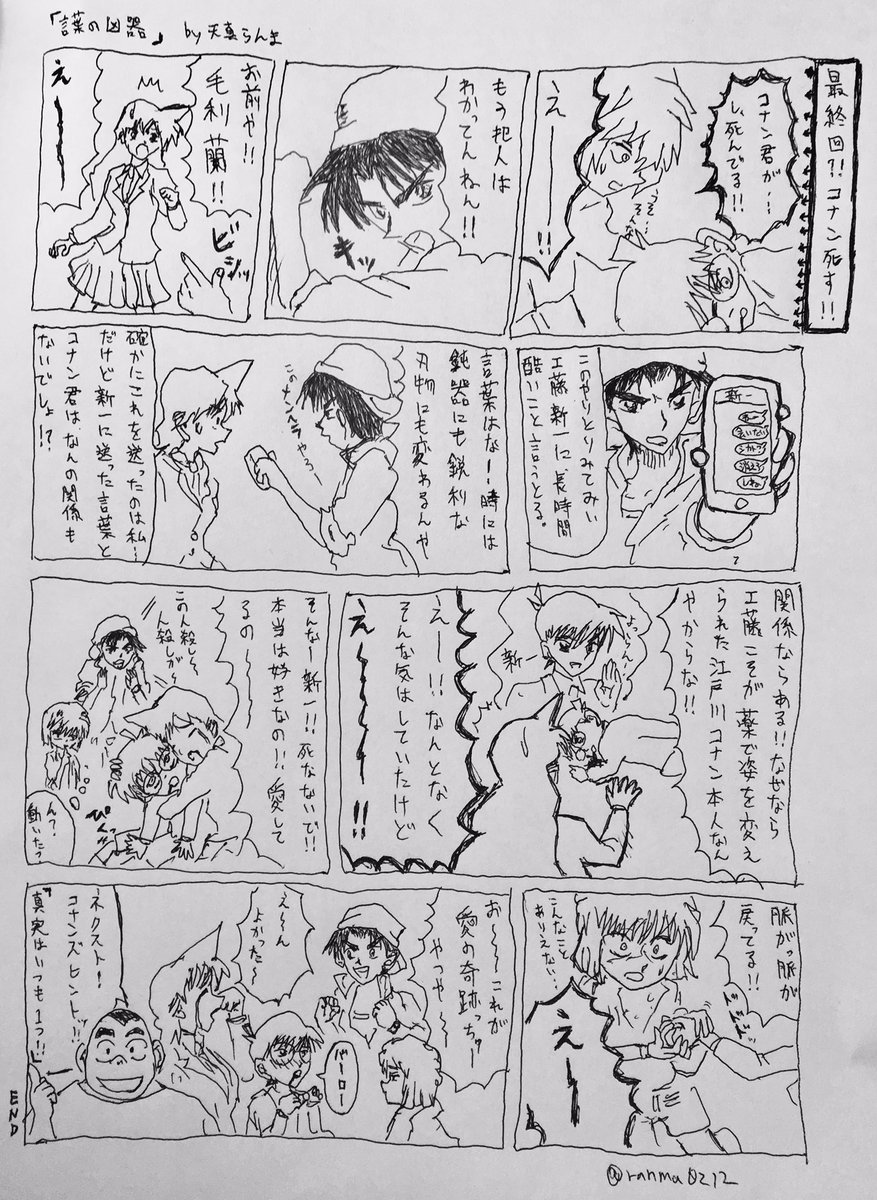 「言葉の凶器」 by天真らんま
最終回?!コナン死す!!
コナン君が・・・
し、死んでる!!
うそ・・・
そんな
えー――!!
もう犯人は
わかってんねん!!
キッ
お前や!!
毛利蘭!!
えー――
ビシッ
このやりとりみてみい
工藤新一に、長時間
酷いこと言うとる。
新一
会いたい
消えろ
しね
言葉はなー時には
鈍器にも鋭利な
刃物にも変わるんや
確かにこれを送ったのは私…
だけど新一に送った言葉と
コナン君はなんの関係も
ないでしょ!?
関係ならある!!なぜなら
工藤こそが薬で姿を変え
られた江戸川コナン本人なん
やからな!!
新一
えー!!なんとなく
そんな気はしていたけど
えー――!!
そんなー新一!!死なないで!!
本当は好きなの!!愛して
るの〜
この人殺し〜
人殺しが〜
ぴくっ
ん?
動いたっ
脈がっ脈が
戻ってる!!
こんなこと
ありえない…
えー――
お〜〜これが
愛の奇跡っちゅー
やつや〜
え〜ん
よかった〜
バーロー
ネクスト!
コナンズヒントッ!!
真実はいつも1つ!!
END
@ranma0212